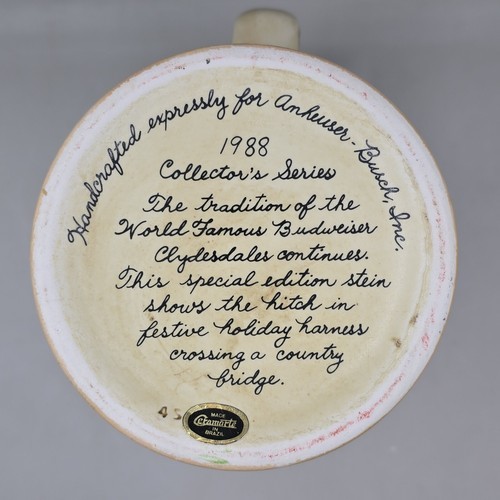 Handcrafted expressly for Anheuser-Busch, Inc.
1988
Collector's Series
The tradition of the
World Famous Budweiser
Clydesdales continues.
This special edition stein
shows the hitch in
festive holiday harness
crossing a country
bridge.
45
MADE
Ceramarte
IN
BRAZIL